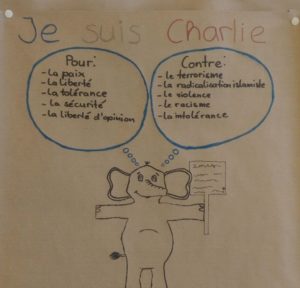 Je suis Charlie
Pour:
- La paix
- La liberté
- La tolérance
- La sécurité
- La liberté d'opinion
Contre:
- le terrorisme
- La radicalisation islamiste
- le violence
- le racisme
- la intolérance